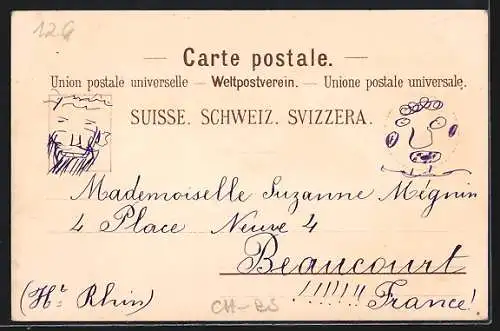 126
— Carte postale. —
Union postale universelle — Weltpostverein. — Unione postale universale.
SUISSE. SCHWEIZ. SVIZZERA.
Mademoiselle Suzanne Mégnin
4 Place Neuve 4
Beaucourt
(Ht Rhin) !!!!!! France!
CH-BS